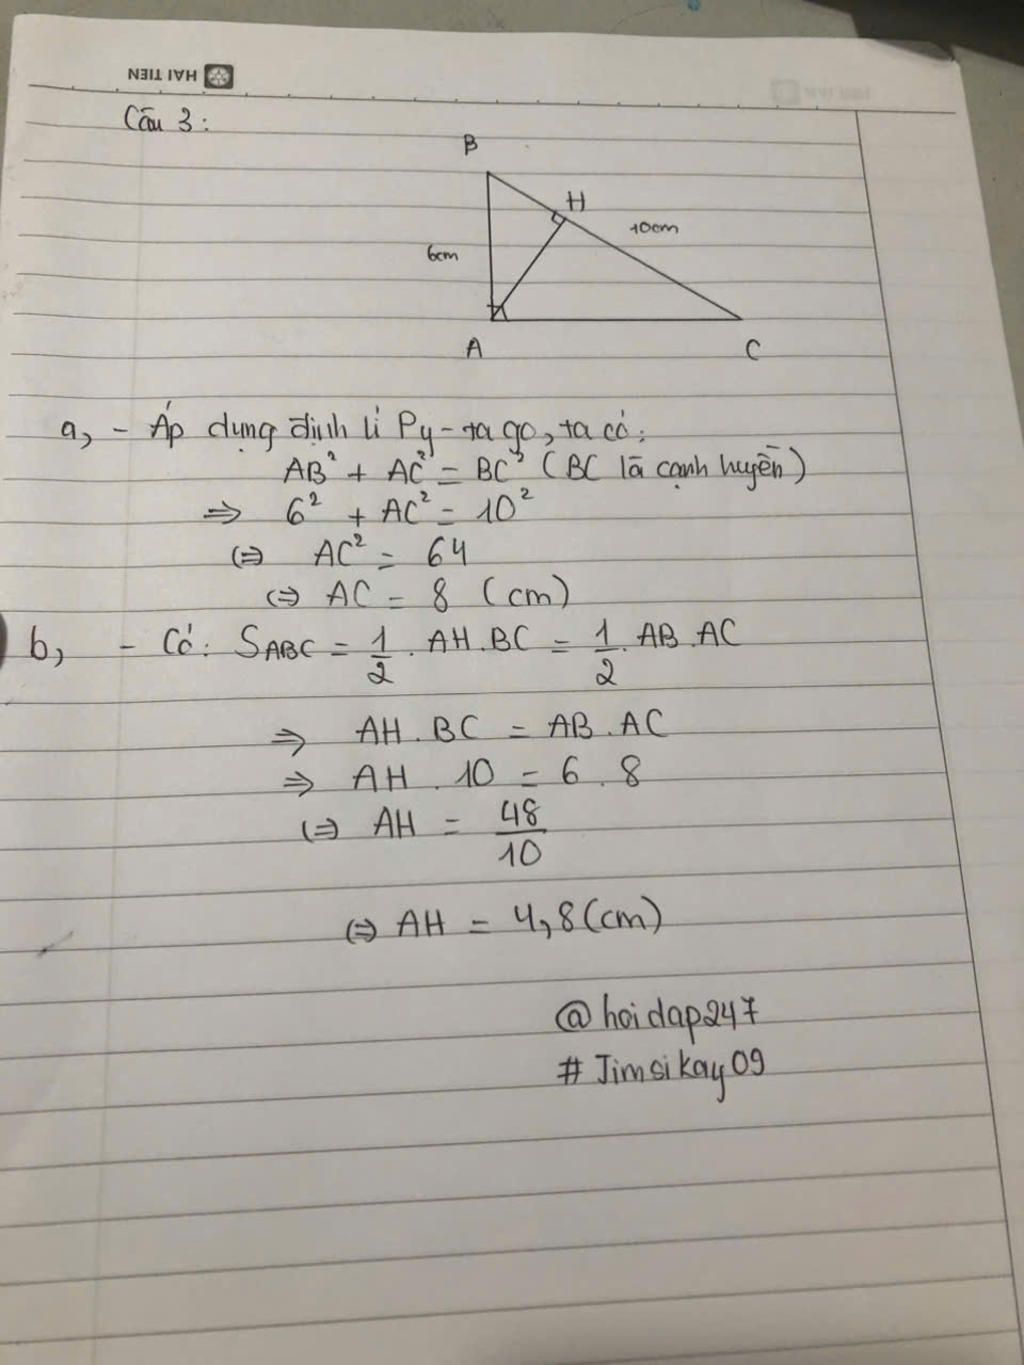 HẢI TIẾN
Câu 3:
B
H
10cm
6cm
A
C
a, - Áp dụng định lí Py-ta go, ta có:
AB² + AC² = BC² (BC là cạnh huyền)
⇒ 6² + AC² = 10²
⇔ AC² = 64
⇔ AC = 8 (cm)
b, - Có: SABC = 1/2 . AH.BC = 1/2 . AB.AC
⇒ AH.BC = AB.AC
⇒ AH . 10 = 6 . 8
⇔ AH = 48/10
⇔ AH = 4,8(cm)
@hoidap247
# Jimsikay09